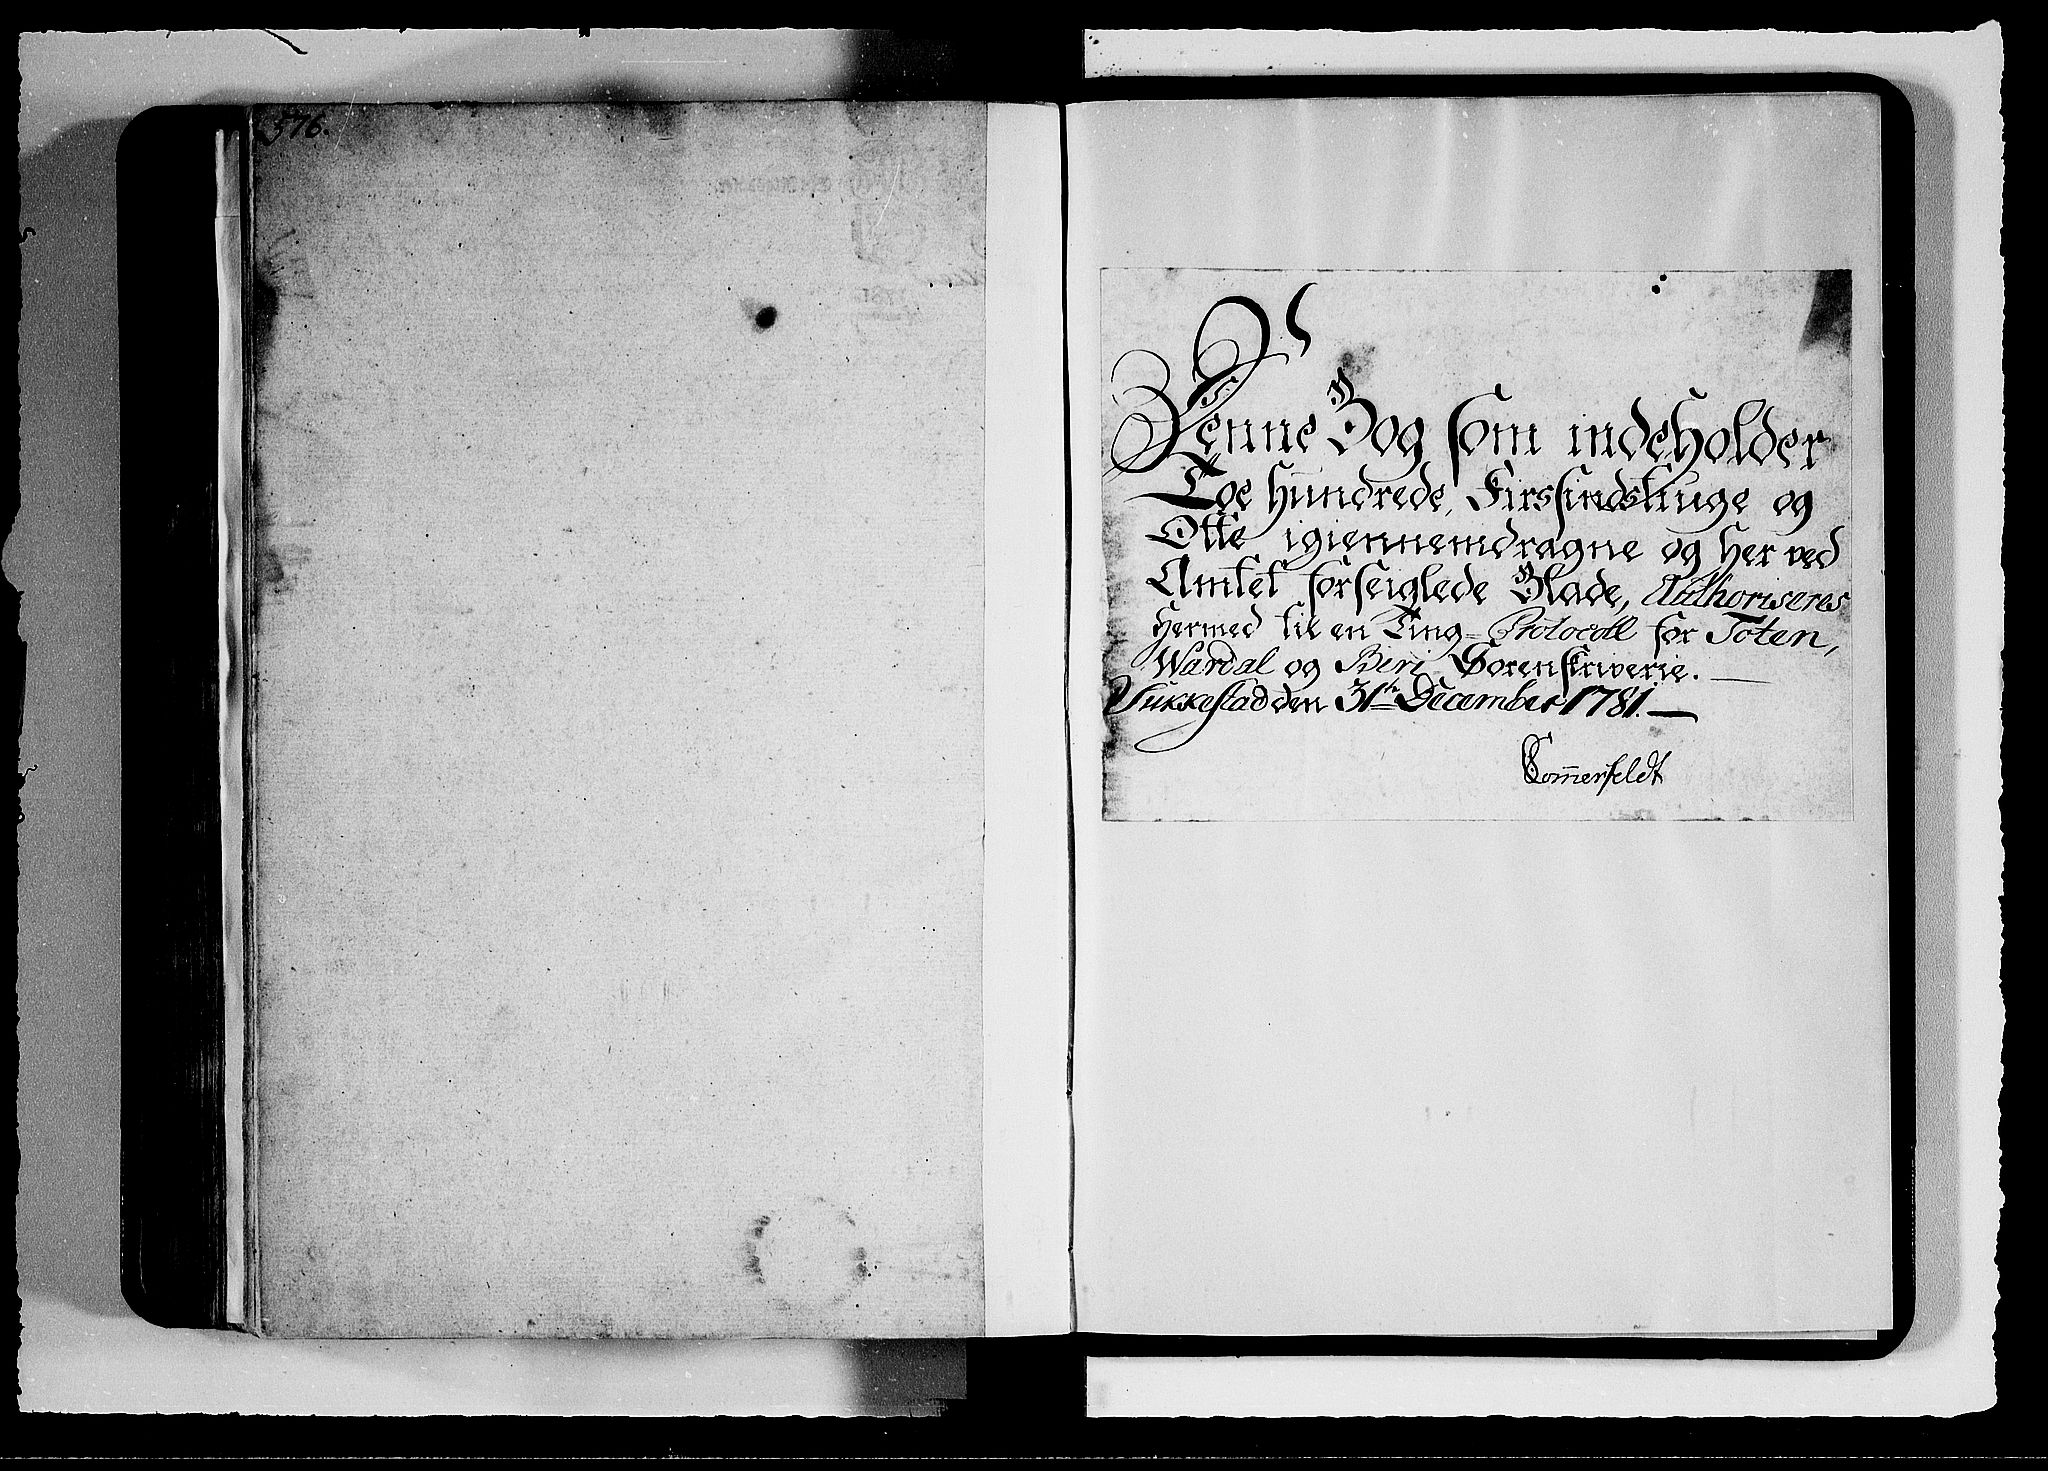 576.
Denne Bog som indeholder
Toe Hundrede, Firsindstiuge og
Otte igiennemdragne og her ved
Amtet forseiglede Blade, Authoriseres
hermed til en Ting-Protocoll for Toten,
Wardal og Biri Sorenskriverie. —
Sukkestad den 31te December 1781. —
Sommerfeldt